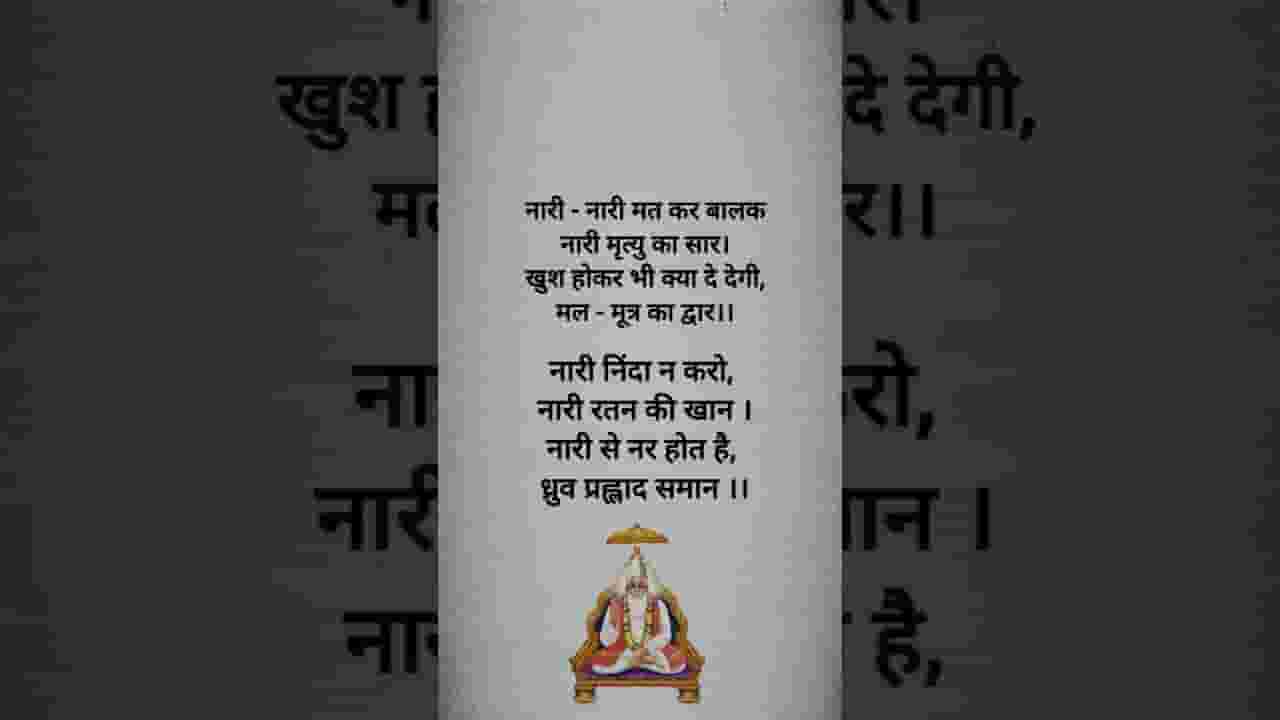 नारी - नारी मत कर बालक
नारी मृत्यु का सार।
खुश होकर भी क्या दे देगी,
मल - मूत्र का द्वार।।
नारी निंदा न करो,
नारी रतन की खान ।
नारी से नर होत है,
ध्रुव प्रह्लाद समान ।।